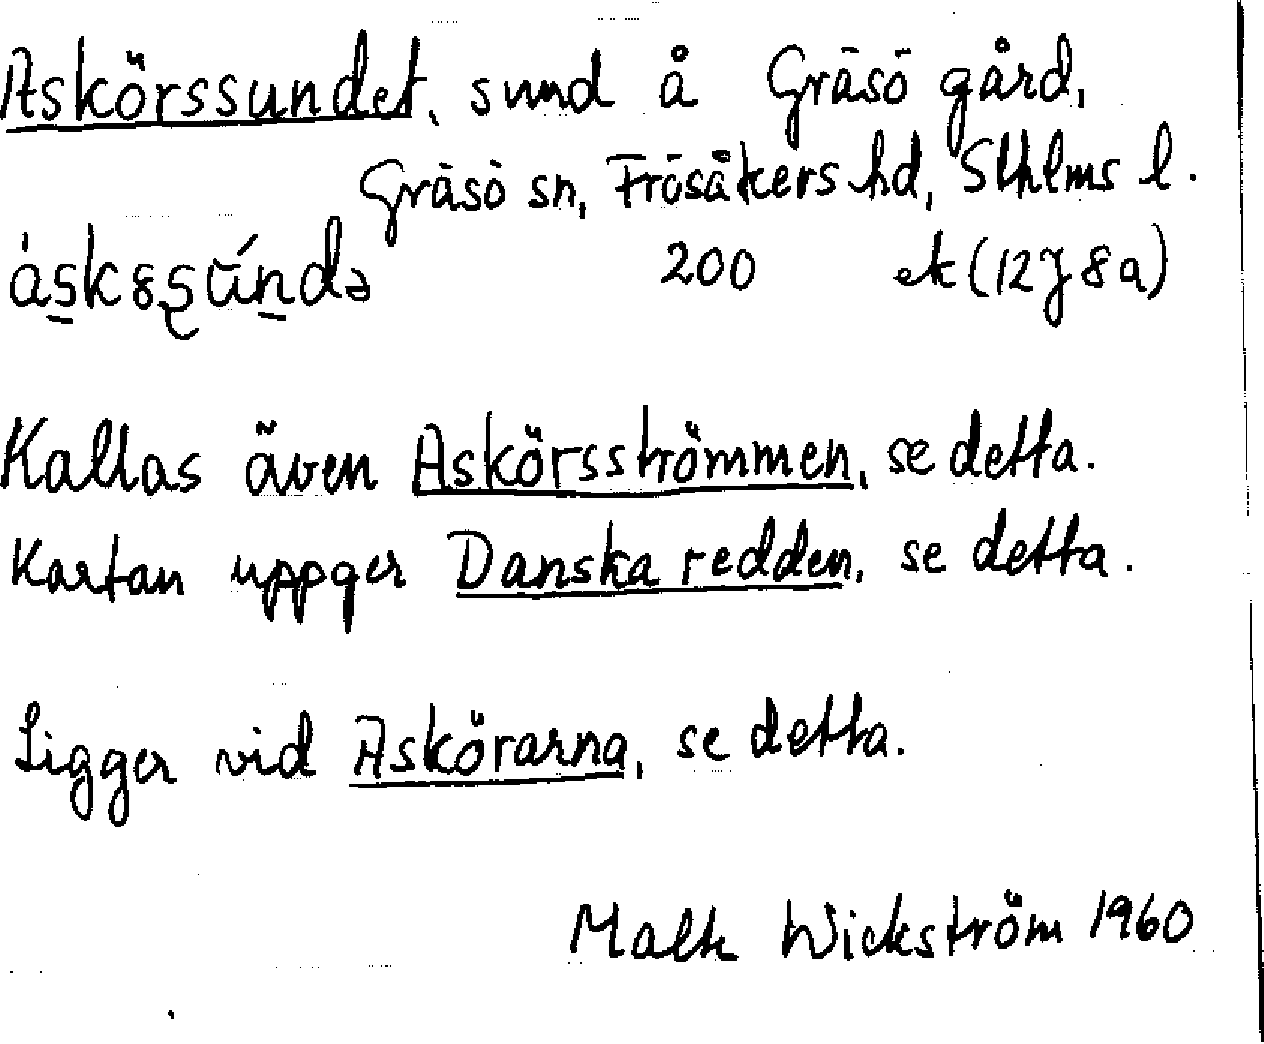 Askörssundet, sund å Gräsö gård,
Gräsö sn, Frösåkers hd, Sthlms l.
200 ek (12J 8a)
Kallas även Askörsströmmen, se detta.
Kartan uppger Danska redden, se detta.
Ligger vid Askörarna, se detta.
Wickström 1960